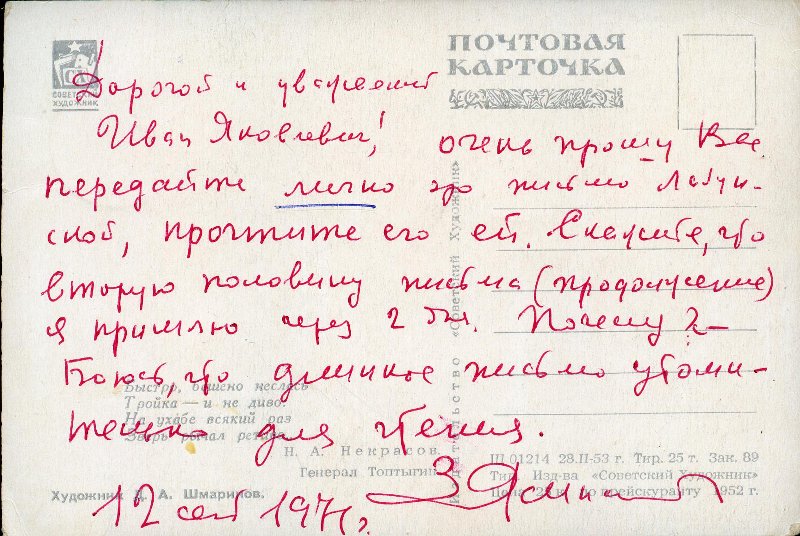 СОВЕТСКИЙ
ХУДОЖНИК
ПОЧТОВАЯ
КАРТОЧКА
Дорогой и уважаемый
Иван Яковлевич! очень прошу Вас
передайте лично это письмо
прочтите его ей. Скажите, что
вторую половину письма (продолжение)
я пришлю через 2 дня. Почему? –
Боюсь, что длинное письмо утоми-
тельно для чтения.
12 сент 1971 г.
Издательство «Советский Художник»
Быстро, бешено неслась
Тройка — и не диво:
На ухабе всякий раз
Зверь рычал ретиво
Н. А. Некрасов.
Генерал Топтыгин
Художник Д. А. Шмаринов.
Ш 01214 28.II-53 г. Тир. 25 т. Зак. 89
Тип. Изд-ва «Советский Художник»
Цена по прейскуранту 1952 г.